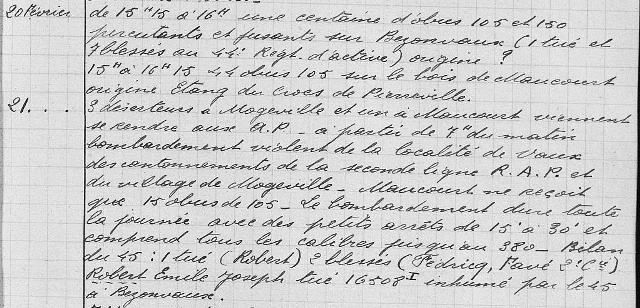 20 Février de 15ʰ15 à 16ʰ une centaine d'obus 105 et 150
percutants et fusants sur Bezonvaux (1 tué et
7 blessés au 44ᵉ Regt. d'active) origine ?
15ʰ à 16ʰ15 44 obus 105 sur le bois de Maucourt
origine Etang du Crocs de Pierreville.
21. . . 3 déserteurs à Mogeville et un à Maucourt viennent
se rendre aux A.P. - à partir de 7ʰ du matin
bombardement violent de la localité de Vaux
des cantonnements de la seconde ligne R.A.P. et
du village de Mogeville - Maucourt ne reçoit
que 15 obus de 105 - Le bombardement dure toute
la journée avec des petits arrêts de 15' à 30' et
comprend tous les calibres jusqu'au 380 - Bilan
du 45 : 1 tué (Robert) 2 blessés (Fédricq, Favé 2ᵉ Cⁱᵉ)
Robert Emile Joseph tué 16508ᴵ inhumé par le 45
à Bezonvaux.